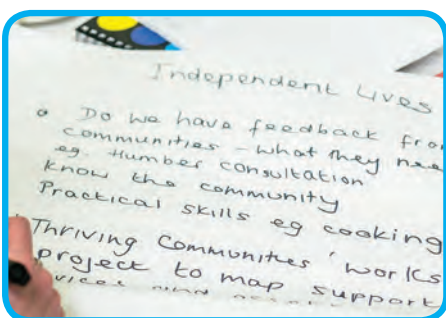 Independent Lives
Do we have feedback from
communities - what they need
eg. Humber consultation
Know the community
Practical skills eg cooking
'Thriving Communities' works
project to map support